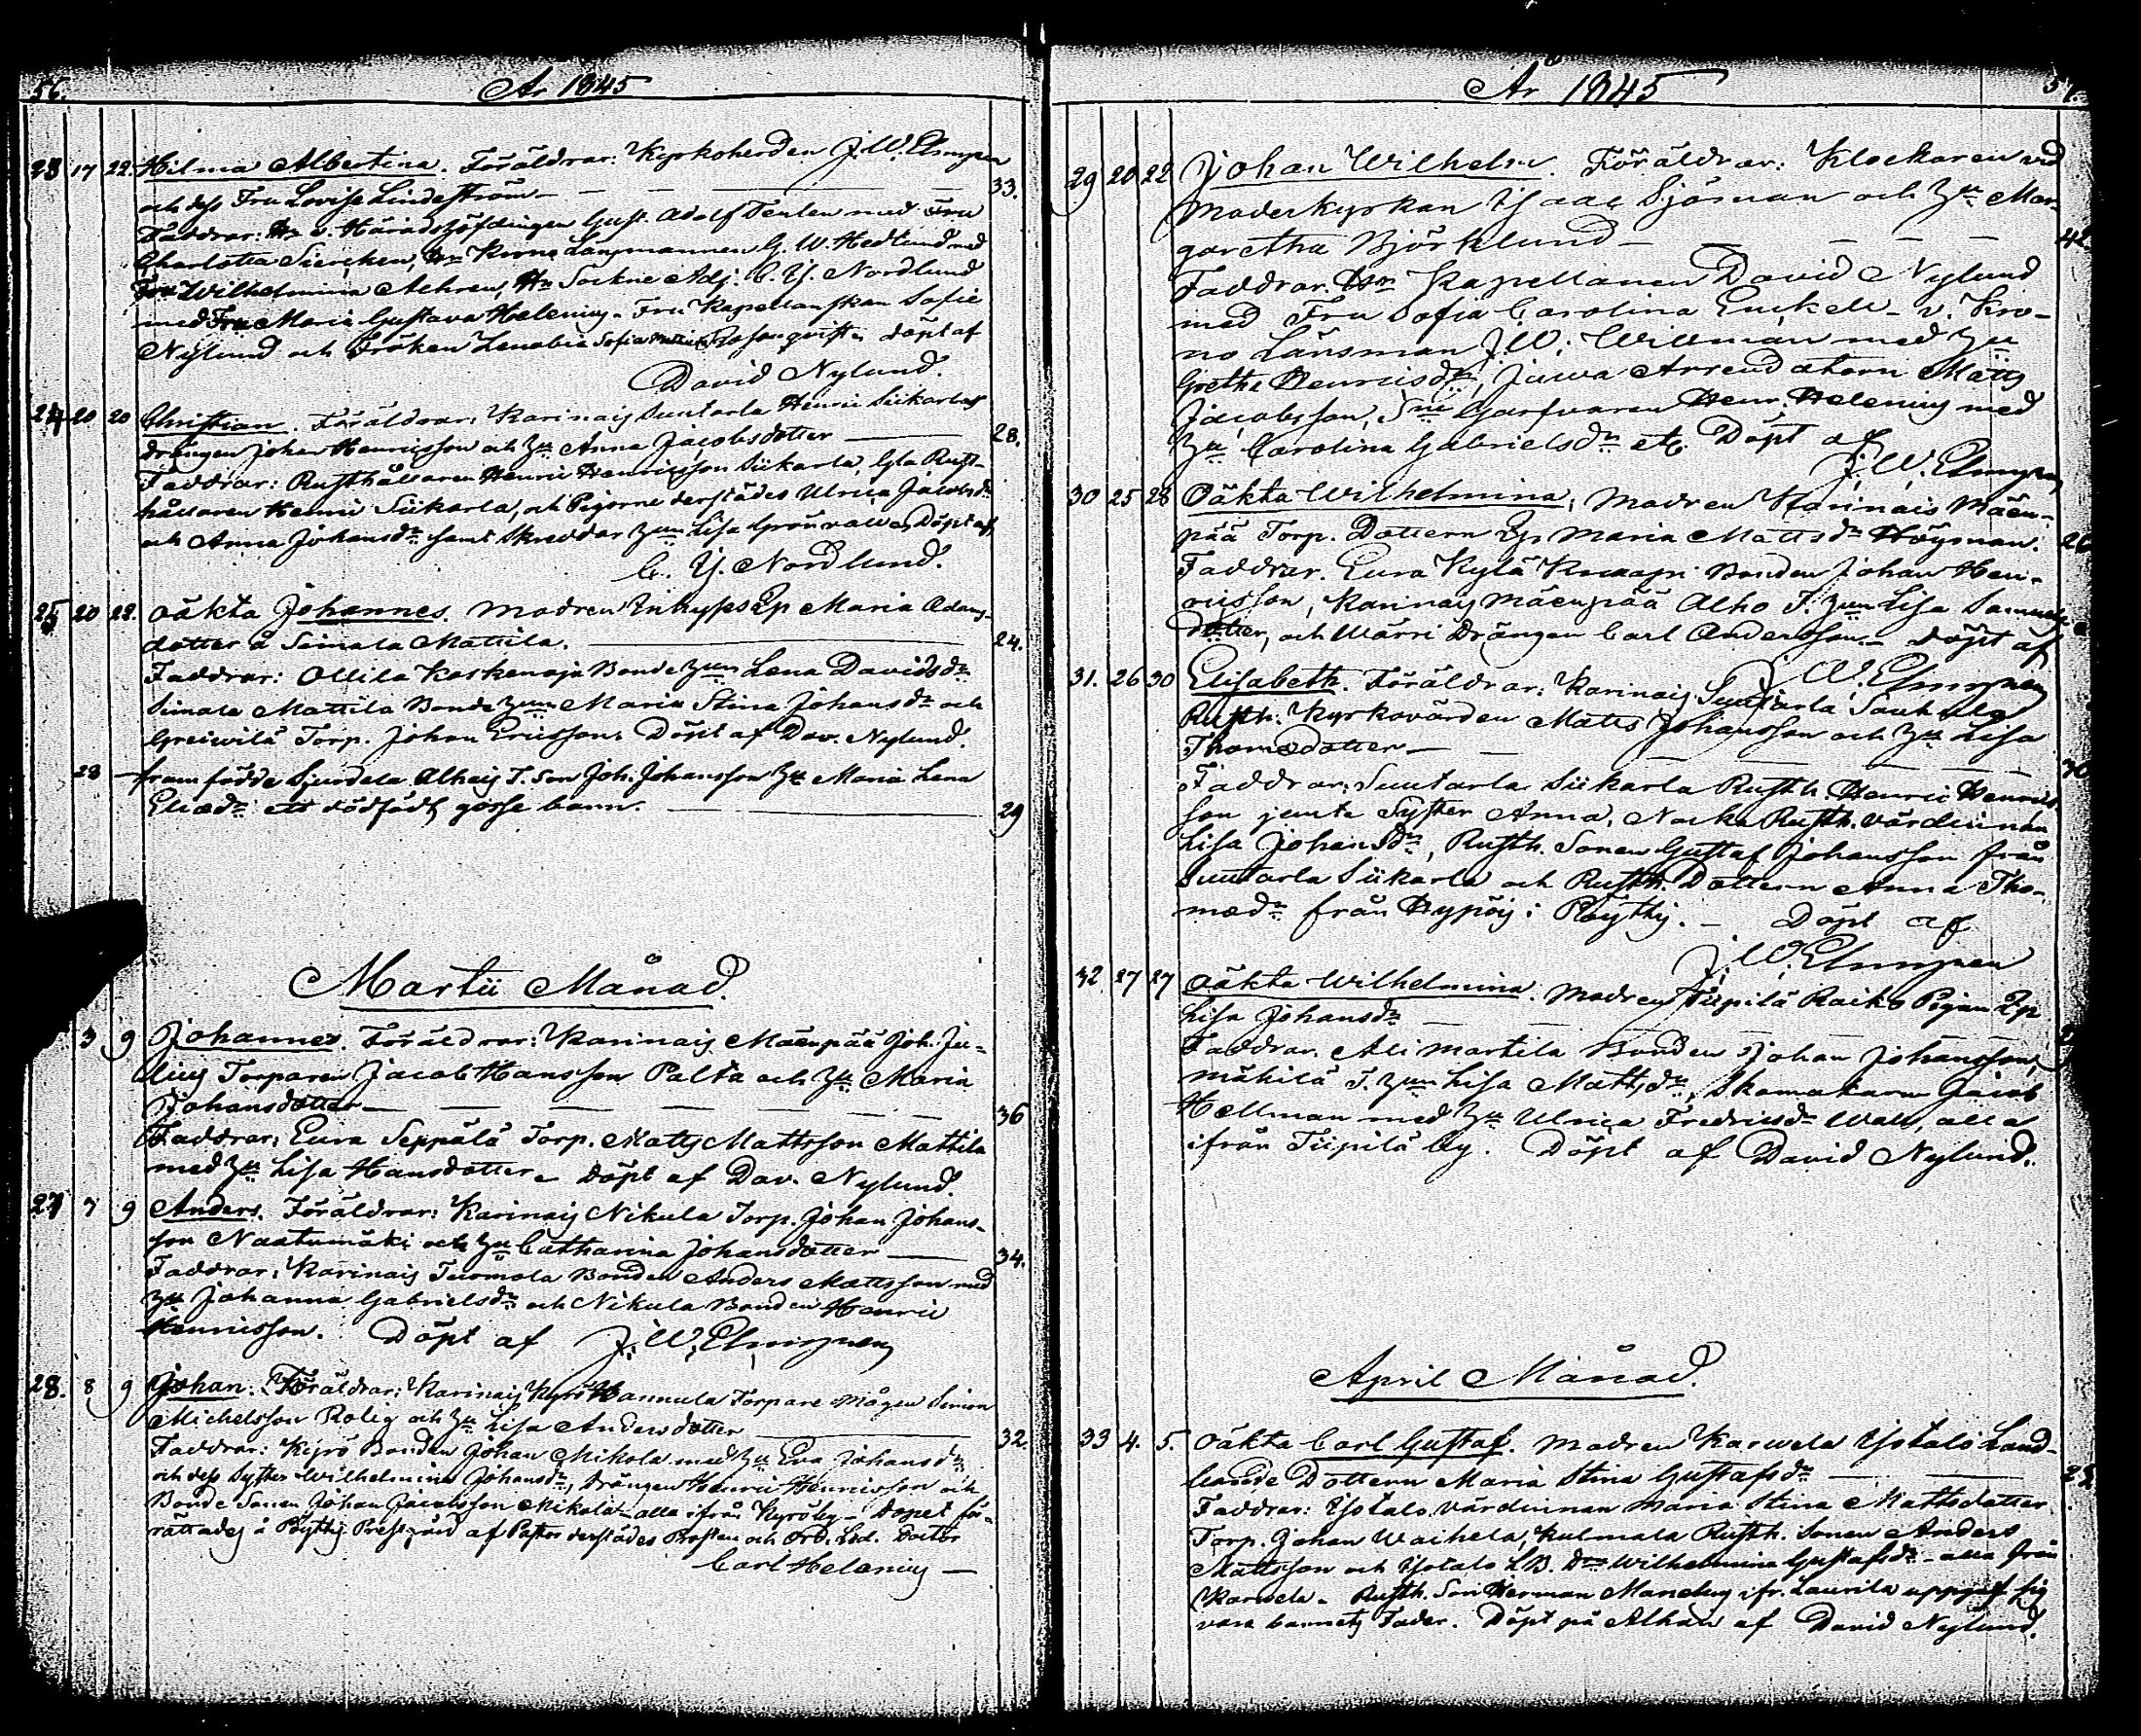 56.
År 1845
23 17 22. Hilma Albertina. Föräldrar: Kyrkoherden J. W. Elmgren
och dess Fru Lovisa Lindeström — 33.
Faddrar: Hr v. Häradshöfdingen Gust. Adolf Tenlen med Fru
Charlotta Siercken, Hr Krono Länsmannen G. W. Hedlund med
Fru Wilhelmina Aehren, Hr Sockne Adj. C. Y. Nordlund
med Fru Maria Gustava Helenius. Fru Kapellanskan Sofie
Nylund och Fröken Zenobia Sofia Döpt af
David Nylund.
24 20 20 Christian. Föräldrar: Karinais Suutarla Henric Siikarlas
drängen Johan Henricsson och Hu Anna Jacobsdotter — 28.
Faddrar: Rusthållaren Henric Henricsson Siikarla, Gla Rust-
hållaren Henric Siikarla, och Pigorne derstädes Ulrica Jacobsdr
och Anna Johansdr samt Skreddar Hun Lisa Grönvall. Döpt af,
C. Y. Nordlund.
25 20 22. oäkta Johannes. modren Inhyses Ep Maria Adams-
dotter å Simala Mattila. — 24.
Faddrar: Ollila Koskenoja Bonde Hun Lena Davidsdr
Simala Mattila Bonde Hun Maria Stina Johansdr och
Greivilä Torp. Johan Ericsson. Döpt af Dav. Nylund.
28 — framfödde Siurdela Alhais T. Son Joh. Johansson Hu Maria Lena
Eliædr ett dödfödt gosse barn. — 29
Martii Månad.
3 9 Johannes. Föräldrar: Karinais Mäenpää Joh. Ju-
lius Torparen Jacob Hansson Palta och Hu Maria
Johansdotter — 36
Faddrar: Eura Seppälä Torp. Matts Mattsson Mattila
med Hu Lisa Hansdotter. Döpt af Dav. Nylund.
27 7 9 Anders. Föräldrar: Karinais Nikula Torp. Johan Johans-
son Naatumäki och Hu Catharina Johansdotter — 34.
Faddrar: Karinais Tuomola Bonden Anders Mattsson med
Hu Johanna Gabrielsdr och Nikula Bonden Henric
Henricsson. Döpt af J. W. Elmgren
28. 8 9 Johan. Föräldrar: Karinais Kyrö Hannula Torpare mågen Simon
Michelsson Rolig och Hu Lisa Andersdotter — 32.
Faddrar: Kyrö Bonden Johan Mikola med Hu Eva Johansdr
och dess Syster Wilhelmina Johansdr, drängen Henric Henricsson och
Bonde Sonen Johan Jacobsson Mikola — alla ifrån Kyröby — Dopet för-
rättades å Pöytis Prestgård af Pastor derstädes Prosten och Ord. Led. Doctor
Carl Helenius —
År 1845
57.
29 20 22 Johan Wilhelm. Föräldrar: Klockaren vid
moderkyrkan Isaac Sjöman och Hu Mar-
garetha Björklund — 42.
Faddrar. Hr Kapellanen David Nylund
med Fru Sofia Carolina Enckell — v. Kro-
no Länsman J. W. Willman med Hu
Gretha Henricsdr, Juva Arrendatorn Matts
Jacobsson, Garfvaren Henr. Helenius med
Hu Carolina Gabrielsdr etc. Döpt af
J. W. Elmgren
30 25 28 Oäkta Wilhelmina, modren Karinais Mäen-
pää Torp. Dottern Ep Maria Mattsdr Högman. 26
Faddrar. Eura Kylä Knaapi Bonden Johan Hen-
ricsson, Karinais Mäenpää Alho T. Hun Lisa Samuels-
dotter, och Wärri Drängen Carl Andersson. — Döpt af
J. W. Elmgren
31. 26 30 Elisabeth. Föräldrar: Karinais Suutarla Sauhula
Rusth. Kyrkovärden Matts Johansson och Hu Lisa
Thomædotter — 30
Faddrar: Suutarla Siikarla Rusth. Henric Henrics-
son jemte Syster Anna, Rusth. värdinnan
Lisa Johansdr, Rusth. Sonen Gustaf Johansson från
Suutarla Siikarla och Rusth. Dottern Anna Tho-
mædr från Hypöis i Pöytis. — Döpt af
J. W. Elmgren
32. 27 27 oäkta Wilhelmina. modren Tiipilä Raiko Pigan Ep
Lisa Johansdr —
Faddrar. Ali Martela Bonden Johan Johansson,
Mäkilä T. Hun Lisa Mattsdr, Skomakarn Jacob
Hellman med Hu Ulrica Fredricsdr Wall, alla
ifrån Tiipilä by. Döpt af David Nylund.
April Månad.
33 4. 5. oäkta Carl Gustaf. modren Karvela Yotalo Land-
bonde Dottern Maria Stina Gustafsdr —
Faddrar: Yotalo värdinnan Maria Stina Mattsdotter
Torp. Johan Waihela, Kulmala Rusth. Sonen Anders
Mattsson och Yotalo LB. Dr Wilhelmina Gustafsdr — alla från
Karvela. Rusth. Son Herman Manelius ifr. Laurila uppgaf sig
vara barnets Fader. Döpt på Alhais af David Nylund.